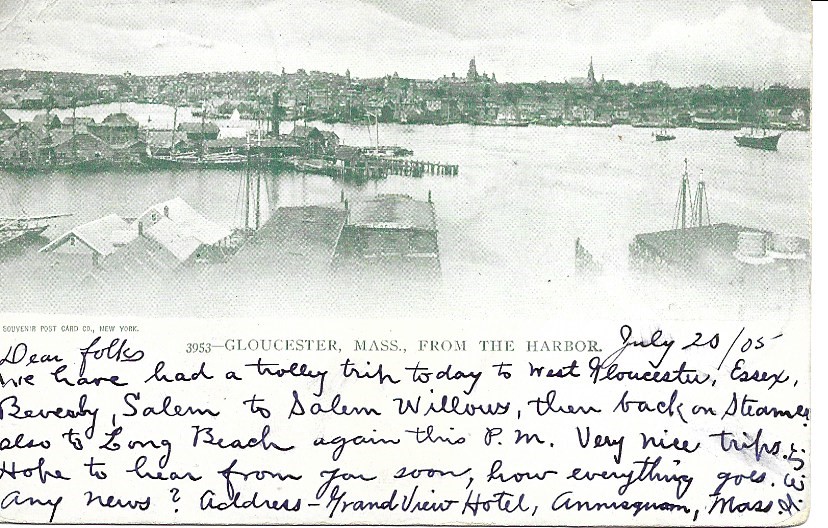 SOUVENIR POST CARD CO., NEW YORK.
3953—GLOUCESTER, MASS., FROM THE HARBOR.
July 20/05
Dear folks
We have had a trolley trip today to West Gloucester, Essex,
Beverly, Salem to Salem Willows, then back on Steamer
also to Long Beach again this P.M. Very nice trips.
Hope to hear from you soon, how everything goes.
Any news? Address - Grand View Hotel, Annisquam, Mass.